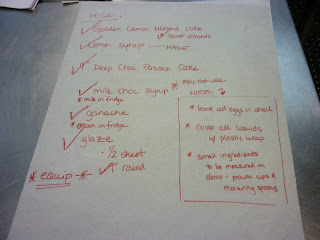 MISE:
✓ Golden Lemon Almond Cake
↳ toast almonds
✓ Lemon Syrup —— MAKE
✓ 9" Deep Choc. Passion Cake
✓ milk choc syrup * may not use.
* milk in fridge
✓ ganache
* cream in fridge
✓ glaze
• 1/2 sheet
* equip - * ✓ 9" round
NOTES:
* leave all eggs in shell
* cover all liquids
w/ plastic wrap
* small ingredients
to be measured in
demo - provide cups &
measuring spoons